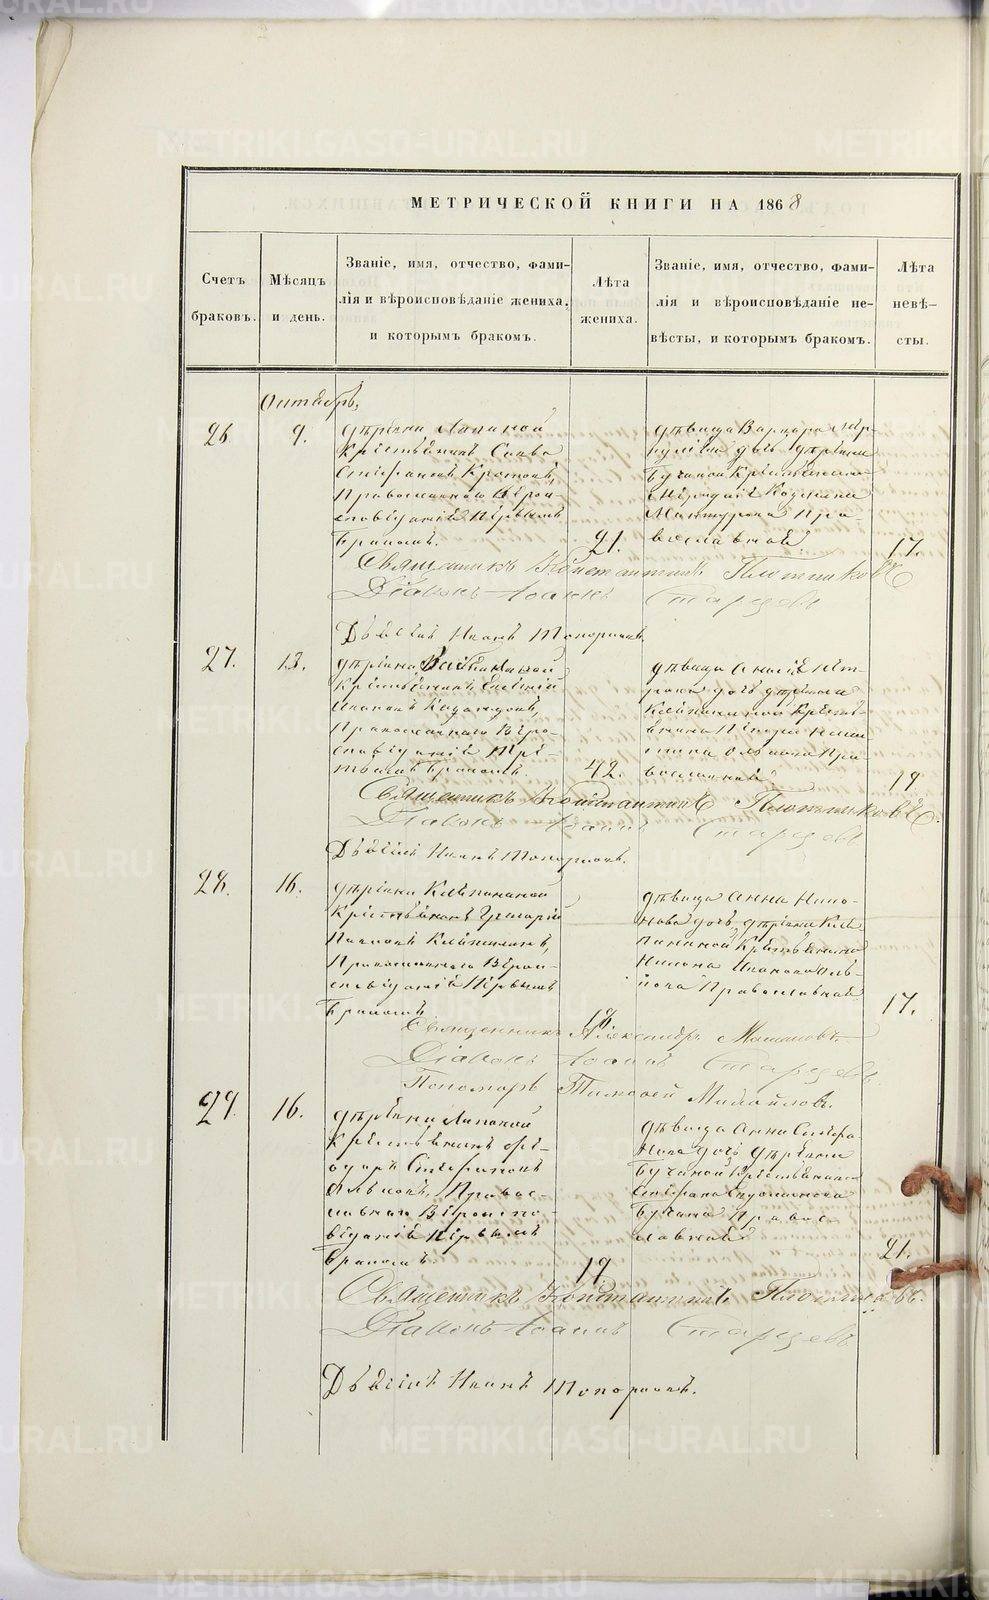 METRIKI.GASO-URAL.RU
МЕТРИЧЕСКОЙ КНИГИ НА 1868
Счетъ браковъ.
Мѣсяцъ и день.
Званіе, имя, отчество, фами-
лія и вѣроисповѣданіе жениха,
и которымъ бракомъ.
Лѣта
жениха.
Званіе, имя, отчество, фами-
лія и вѣроисповѣданіе не-
вѣсты, и которымъ бракомъ.
Лѣта
невѣ-
сты.
Октябрь,
26
9.
деревни Лапиной
Крестьянинъ Савва
Стефановъ
Православнаго вѣрои-
сповѣданія первымъ
бракомъ.
21.
дѣвица Варвара
дочь деревни
Бучиной Крестьянина
Пра-
вославной
17.
Священникъ Константинъ Плотниковъ
Діаконъ Іоаннъ Старцевъ
Дьячекъ Иванъ Топорковъ
27.
13.
деревни
Крестьянинъ Евгений
Ивановъ
Православнаго вѣро-
исповѣданія тре-
тьимъ бракомъ.
42.
дѣвица Анисія Пет-
рова дочь деревни
Клепининой Кресть-
янина Петра
Пра-
вославной
19
Священникъ Константинъ Плотниковъ.
Діаконъ Іоаннъ Старцевъ
Дьячекъ Иванъ Топорковъ.
28.
16.
деревни Клепининой
Крестьянинъ Григорій
Павловъ Клепининъ,
Православнаго вѣрои-
сповѣданія первымъ
бракомъ.
18
дѣвица Анна Нико-
нова дочь, деревни Кле-
пининой Крестьянина
Никона Иванова
Православной
17.
Священникъ Александръ
Діаконъ Іоаннъ Старцевъ
Пономарь Тимофей Михайловъ.
29.
16.
деревни Лапиной
Крестьянинъ Фе-
доръ Стефановъ
Правос-
лавнаго вѣроиспо-
вѣданія первымъ
бракомъ.
19
дѣвица Анна Стефа-
нова дочь деревни
Бучиной Крестьянина
Стефана
Бучина Правос-
лавной
21.
Священникъ Константинъ Плотниковъ.
Діаконъ Іоаннъ Старцевъ
Дьячекъ Иванъ Топорковъ.